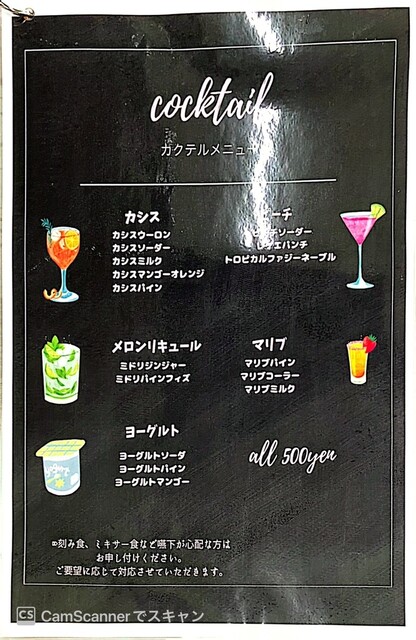 cocktail
カクテルメニュー
カシス
カシスウーロン
カシスソーダー
カシスミルク
カシスマンゴーオレンジ
カシスパイン
ーチ
ソーダー
パンチ
トロピカルファジーネーブル
メロンリキュール
ミドリジンジャー
ミドリパインフィズ
マリブ
マリブパイン
マリブコーラー
マリブミルク
ヨーグルト
ヨーグルトソーダ
ヨーグルトパイン
ヨーグルトマンゴー
all 500yen
※刻み食、ミキサー食など嚥下が心配な方は
お申し付けください。
ご要望に応じて対応させていただきます。
CS CamScannerでスキャン